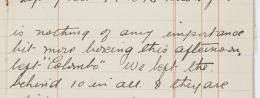 is nothing of any importance
bit more boxing this afternoon,
left "Colombo" We left the
behind 10 in all & they are